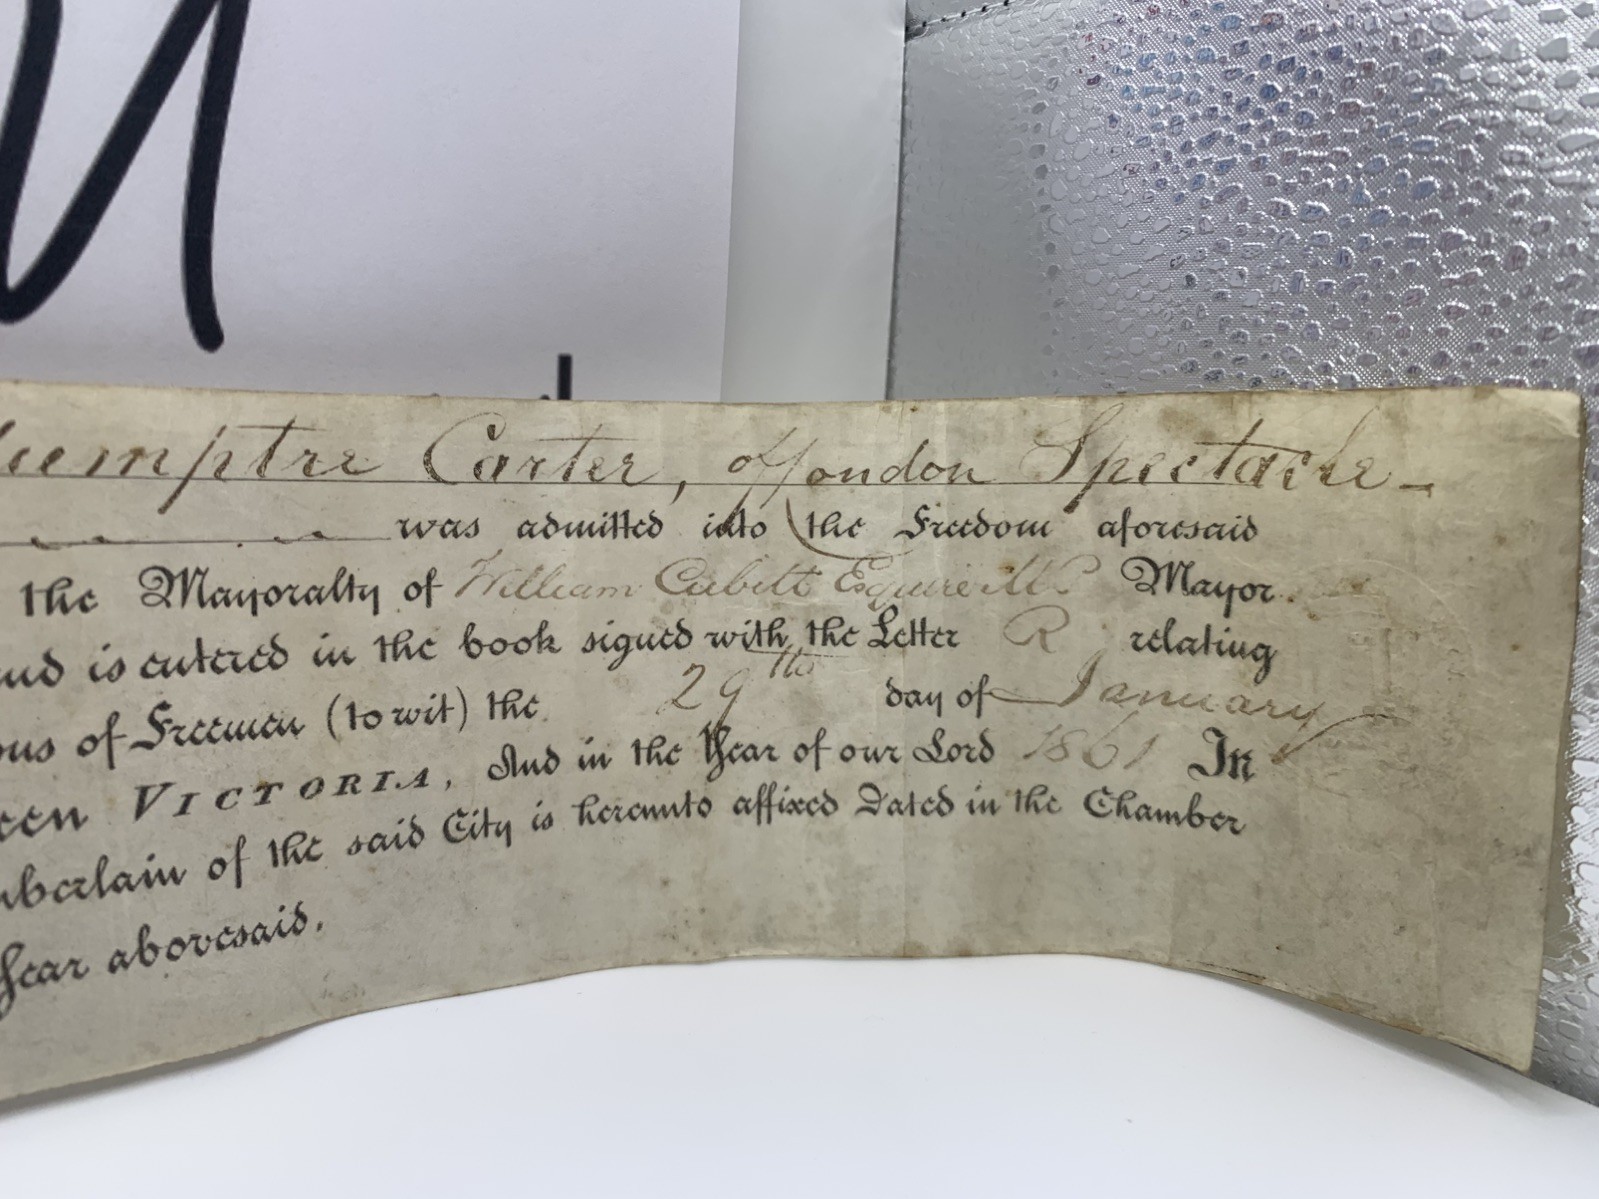 umptre Carter, of London Spectacle-
was admitted into the Freedom aforesaid
the Mayoralty of William Cubitt Esquire MP Mayor
and is entered in the book signed with the Letter R relating
ons of Freemen (to wit) the 29th day of January
een VICTORIA, And in the Year of our Lord 1861 In
mberlain of the said City is hereunto affixed Dated in the Chamber
Year abovesaid.